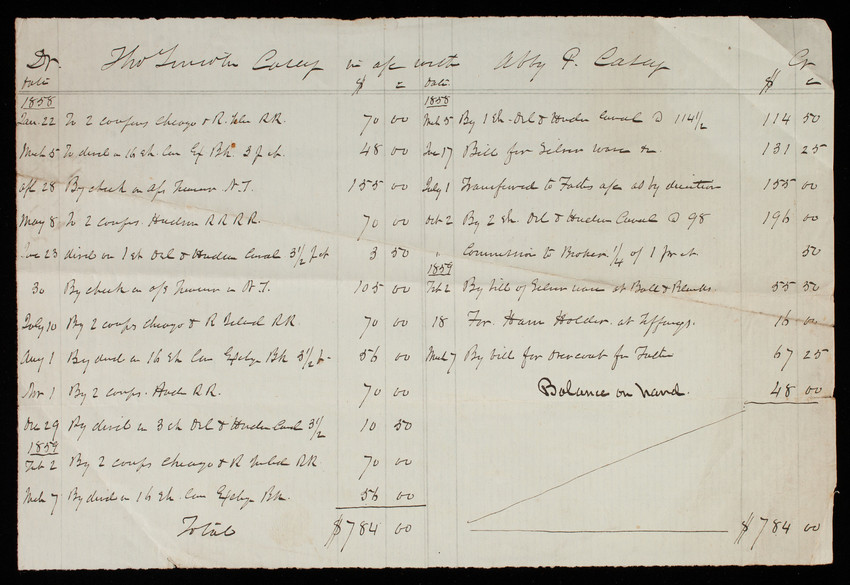 Dr. Thos Lincoln Casey in a/c with Abby P. Casey Cr
Date $ c Date $ c
1858
Jan. 22 To 2 coupons Chicago & R. Isla RR. 70 00
Mch 5 To divd on 16 sh. Am Ex Bk. 3 p ct. 48 00
apl 28 By check on a/s Treasurer N.Y. 155 00
May 8 To 2 coups. Hudson R R R R. 70 00
June 23 divd on 1 sh Del & Hudson Canal 3 1/2 p ct 3 50
30 By check on a/s Treasurer in N.Y. 105 00
July 10 By 2 coups Chicago & R Island RR. 70 00
Aug 1 By divd on 16 sh Am Exchge Bk 3 1/2 p. 56 00
Nov 1 By 2 coups. Hud RR. 70 00
Dec 29 By divd on 3 sh Del & Hudson Canl 3 1/2 10 50
1859
Feb 2 By 2 coups Chicago & R Island RR 70 00
Mch 7 By divd on 16 sh. Am Exchge Bk. 56 00
Total $784 00
1858
Mch 5 By 1 sh. Del & Hudson Canal @ 114 1/2 114 50
June 17 Bill for Silver ware &c. 131 25
July 1 Transferred to Fathers a/c as by direction 155 00
Oct 2 By 2 sh. Del & Hudson Canal @ 98 196 00
" Commission to Broker 1/4 of 1 pr ct. 50
1859
Feb 2 By bill of Silver ware at Ball & Blacks 55 50
18 For Ham Holder at Tiffanys. 16 00
Mch 7 By bill for overcoat for Father 67 25
Balance on hand. 48 00
$784 00